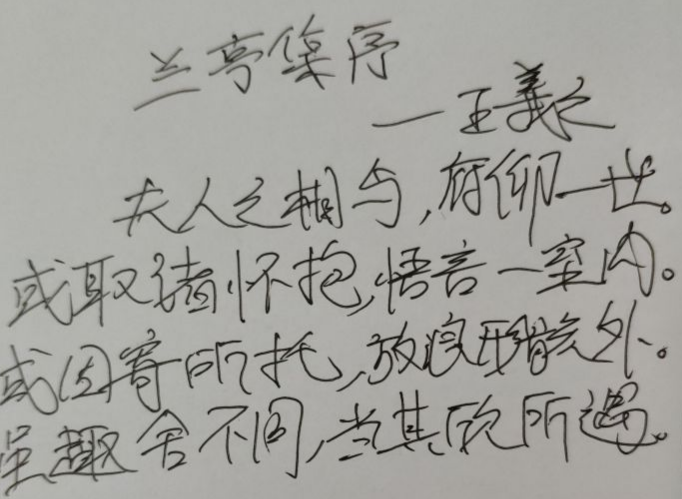 兰亭集序
一王義之
夫人之相与,府仰一世。
或取猪怀抱,悟言一室内。
或因寄所托,放浪形骸外。
虽趣舍不同,当其欣所遇。